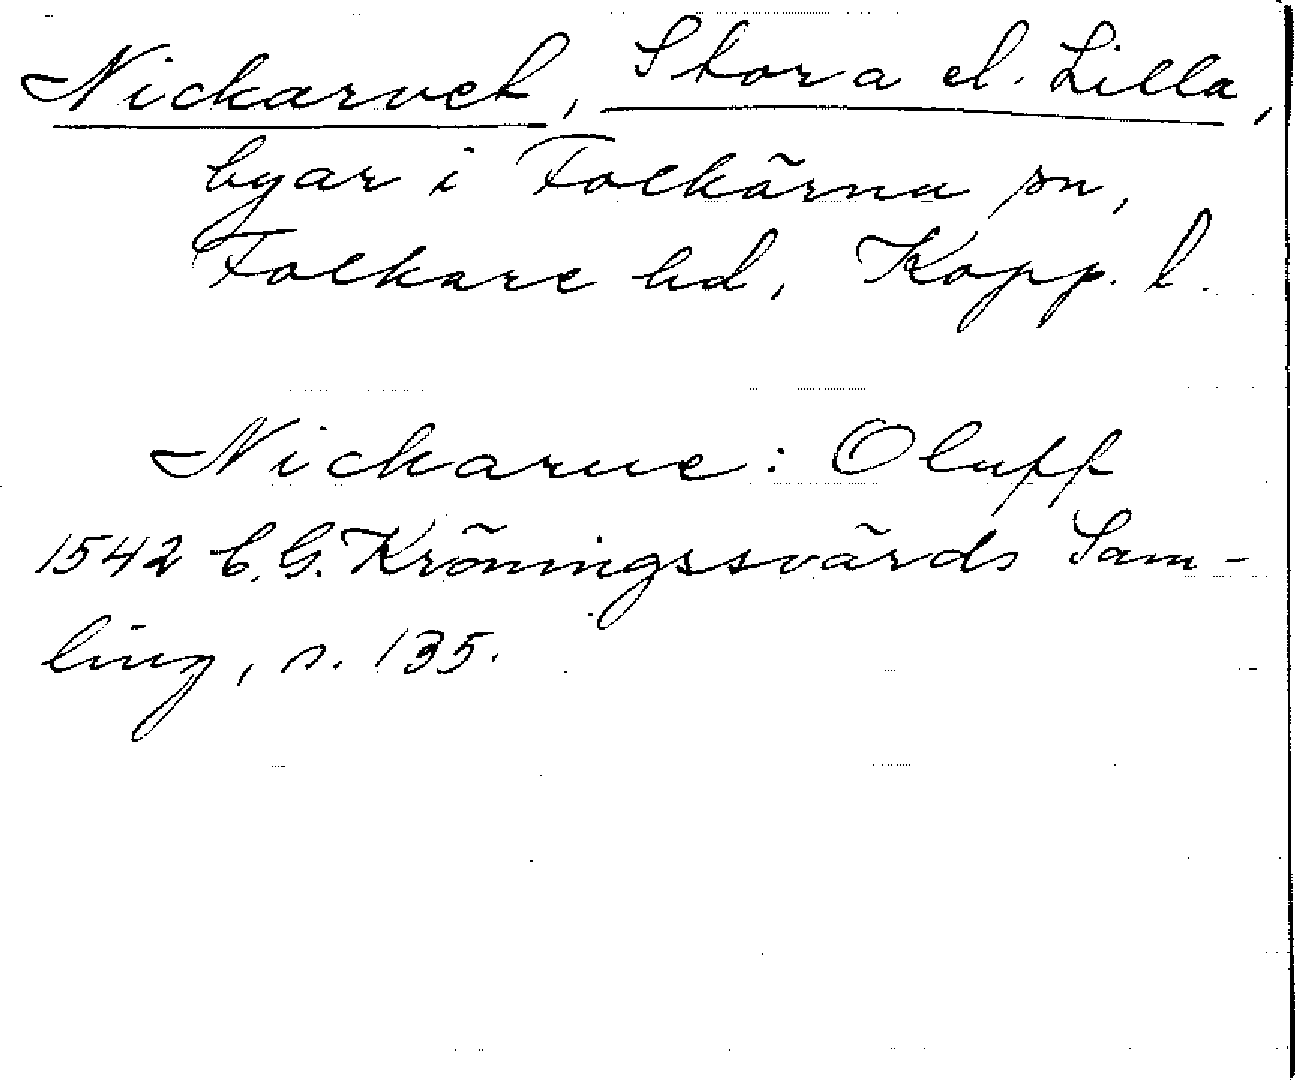 Nickarvet, Stora el. Lilla,
byar i Folkärna sn,
Folkare hd, Kopp. l.
Nickarue: Oluff
1542 C. G. Kröningssvärds Sam-
ling, s. 135.